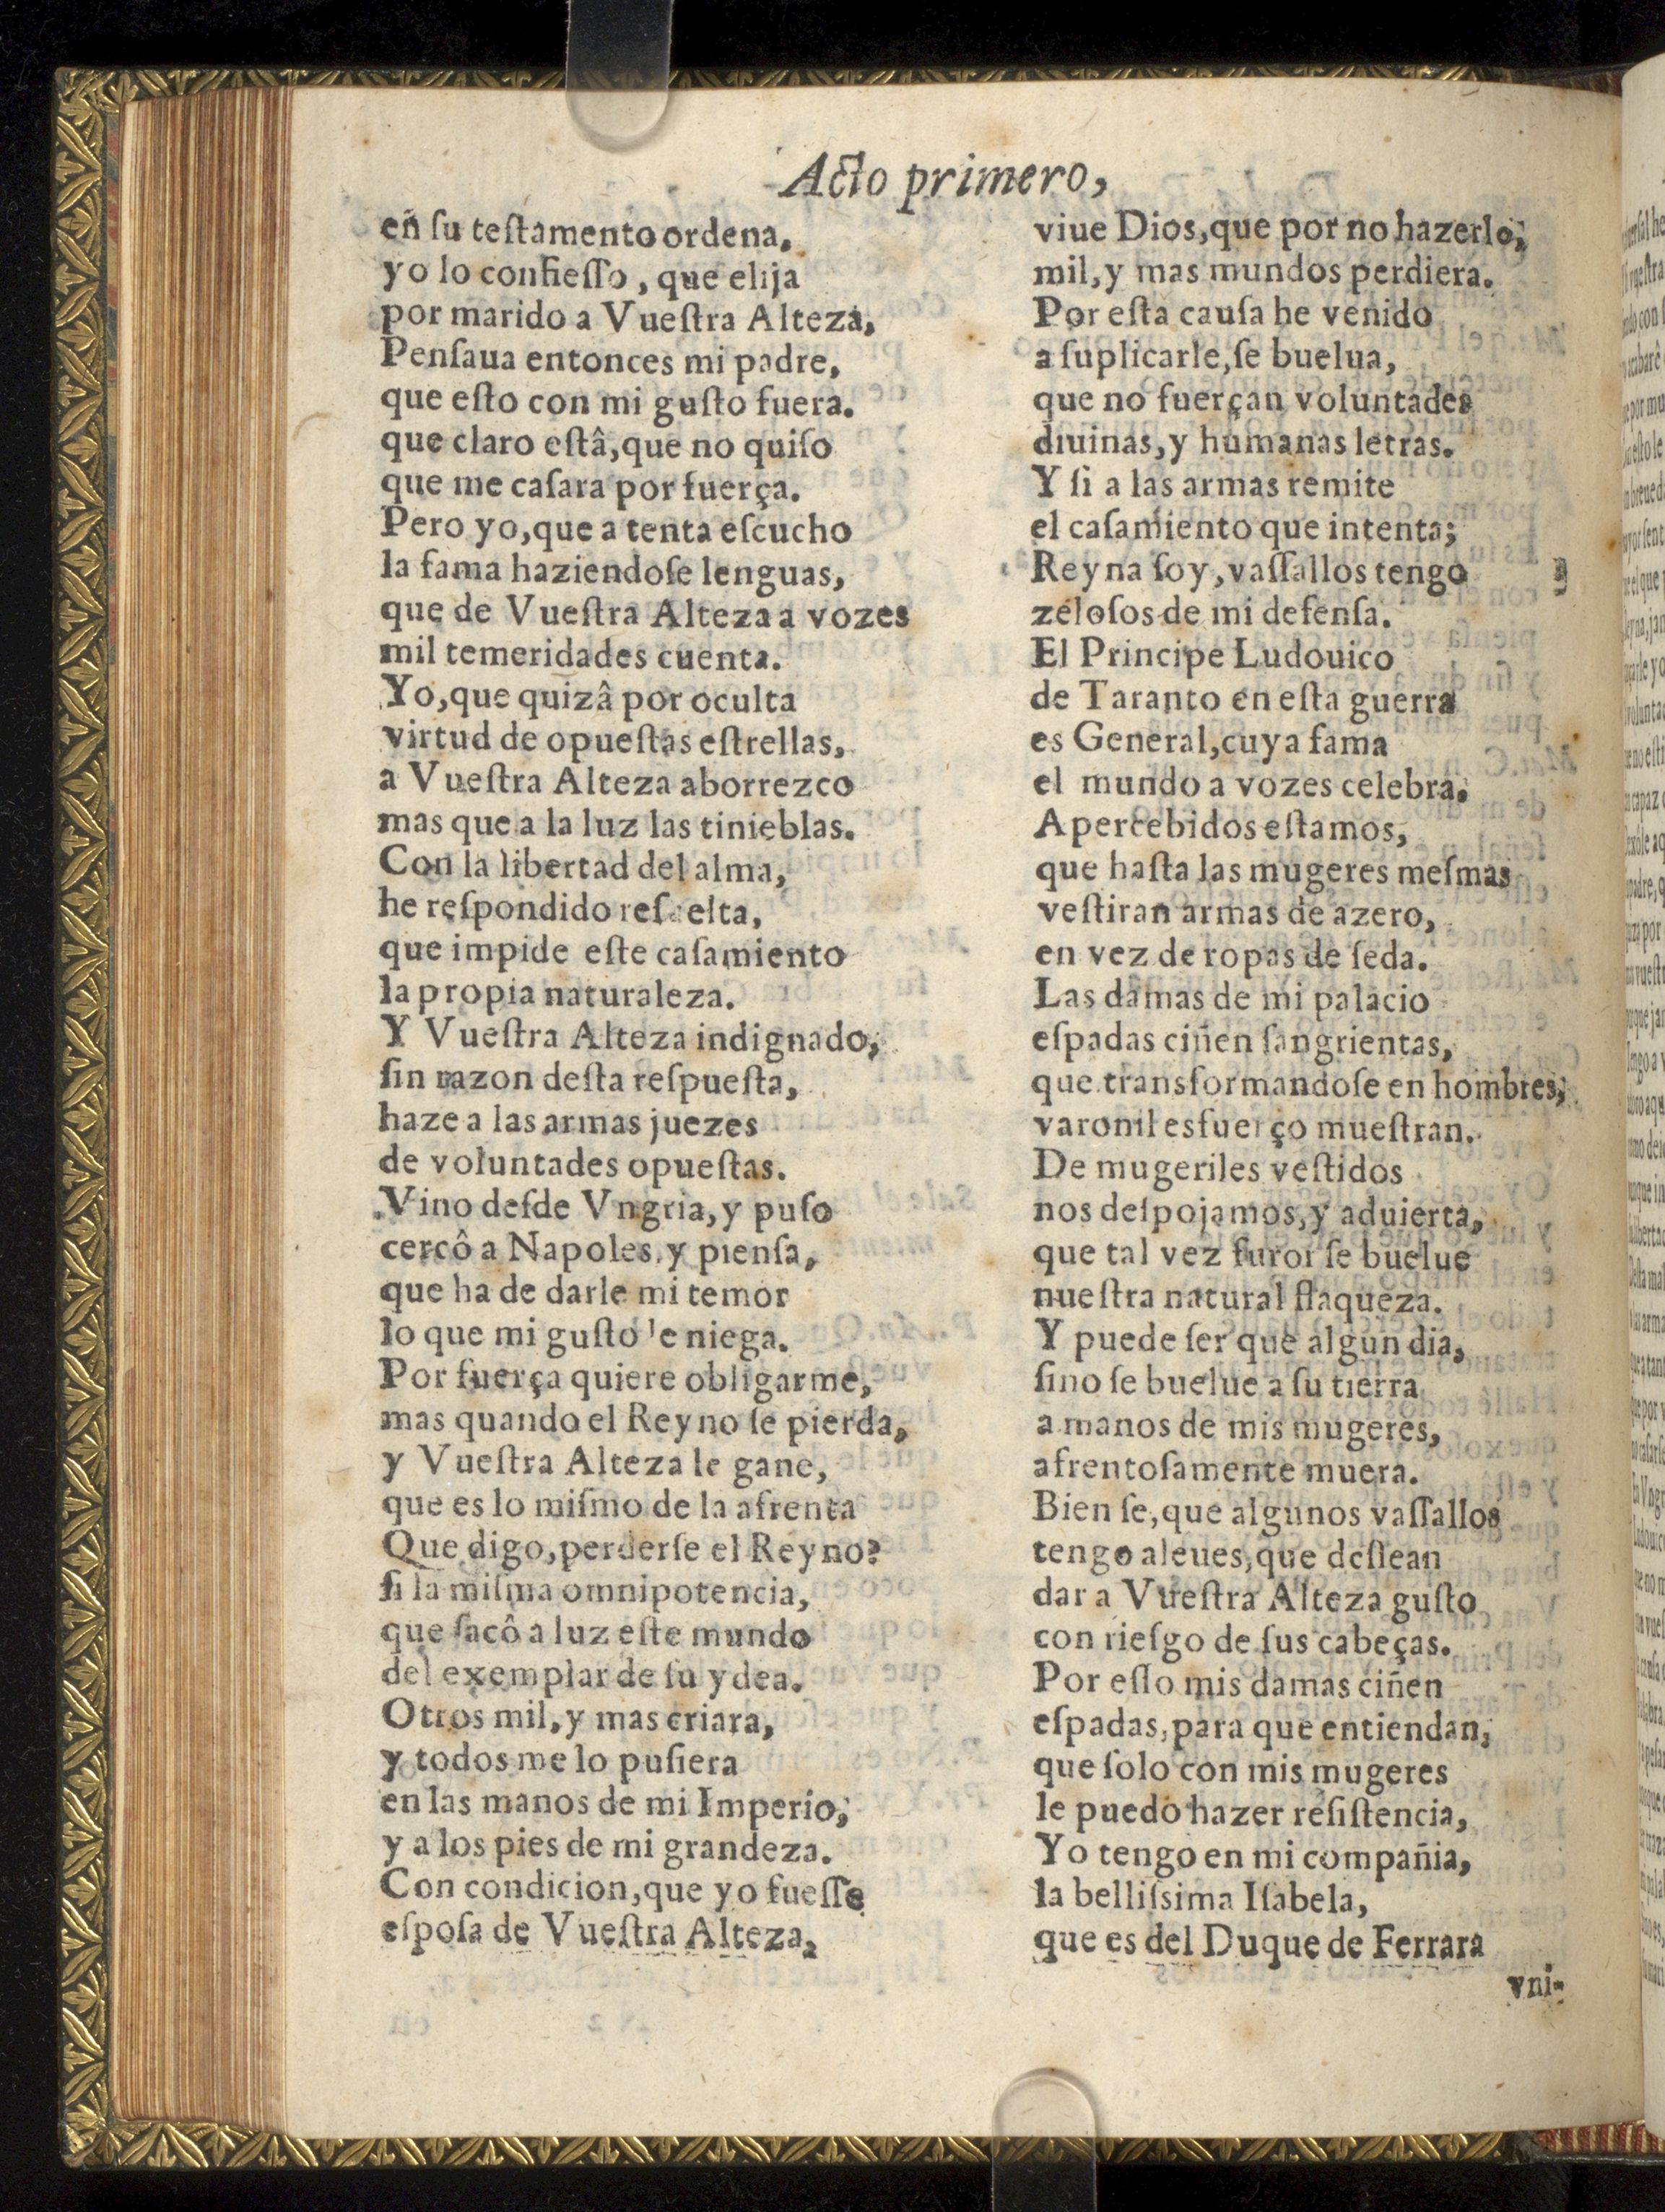 Acto primero,
en ſu teſtamento ordena,
yo lo confieſſo, que elija
por marido a Vueſtra Alteza,
Penſaua entonces mi padre,
que eſto con mi guſto fuera.
que claro eſtâ, que no quiſo
que me caſara por fuerça.
Pero yo, que a tenta eſcucho
la fama haziendoſe lenguas,
que de Vueſtra Alteza a vozes
mil temeridades cuenta.
Yo, que quizâ por oculta
virtud de opueſtas eſtrellas,
a Vueſtra Alteza aborrezco
mas que a la luz las tinieblas.
Con la libertad del alma,
he reſpondido reſuelta,
que impide eſte caſamiento
la propia naturaleza.
Y Vueſtra Alteza indignado,
ſin razon deſta reſpueſta,
haze a las armas juezes
de voluntades opueſtas.
Vino deſde Vngria, y puſo
cercô a Napoles, y pienſa,
que ha de darle mi temor
lo que mi guſto le niega.
Por fuerça quiere obligarme,
mas quando el Reyno ſe pierda,
y Vueſtra Alteza le gane,
que es lo miſmo de la afrenta
Que digo, perderſe el Reyno?
ſi la miſma omnipotencia,
que ſacô a luz eſte mundo
del exemplar de ſu ydea.
Otros mil, y mas criara,
y todos me lo puſiera
en las manos de mi Imperio,
y a los pies de mi grandeza.
Con condicion, que yo fueſſe
eſpoſa de Vueſtra Alteza,
viue Dios, que por no hazerlo,
mil, y mas mundos perdiera.
Por eſta cauſa he venido
a ſuplicarle, ſe buelua,
que no fuerçan voluntades
diuinas, y humanas letras.
Y ſi a las armas remite
el caſamiento que intenta;
Reyna ſoy, vaſſallos tengo
zeloſos de mi defenſa.
El Principe Ludouico
de Taranto en eſta guerra
es General, cuya fama
el mundo a vozes celebra.
Apercebidos eſtamos,
que haſta las mugeres meſmas
veſtiran armas de azero,
en vez de ropas de ſeda.
Las damas de mi palacio
eſpadas ciñen ſangrientas,
que transformandoſe en hombres,
varonil esfuerço mueſtran.
De mugeriles veſtidos
nos deſpojamos, y aduierta,
que tal vez furor ſe buelue
nueſtra natural flaqueza.
Y puede ſer que algun dia,
ſino ſe buelue a ſu tierra
a manos de mis mugeres,
afrentoſamente muera.
Bien ſe, que algunos vaſſallos
tengo aleues, que deſſean
dar a Vueſtra Alteza guſto
con rieſgo de ſus cabeças.
Por eſſo mis damas ciñen
eſpadas, para que entiendan,
que ſolo con mis mugeres
le puedo hazer reſiſtencia,
Yo tengo en mi compañia,
la belliſsima Iſabela,
que es del Duque de Ferrara
vni-